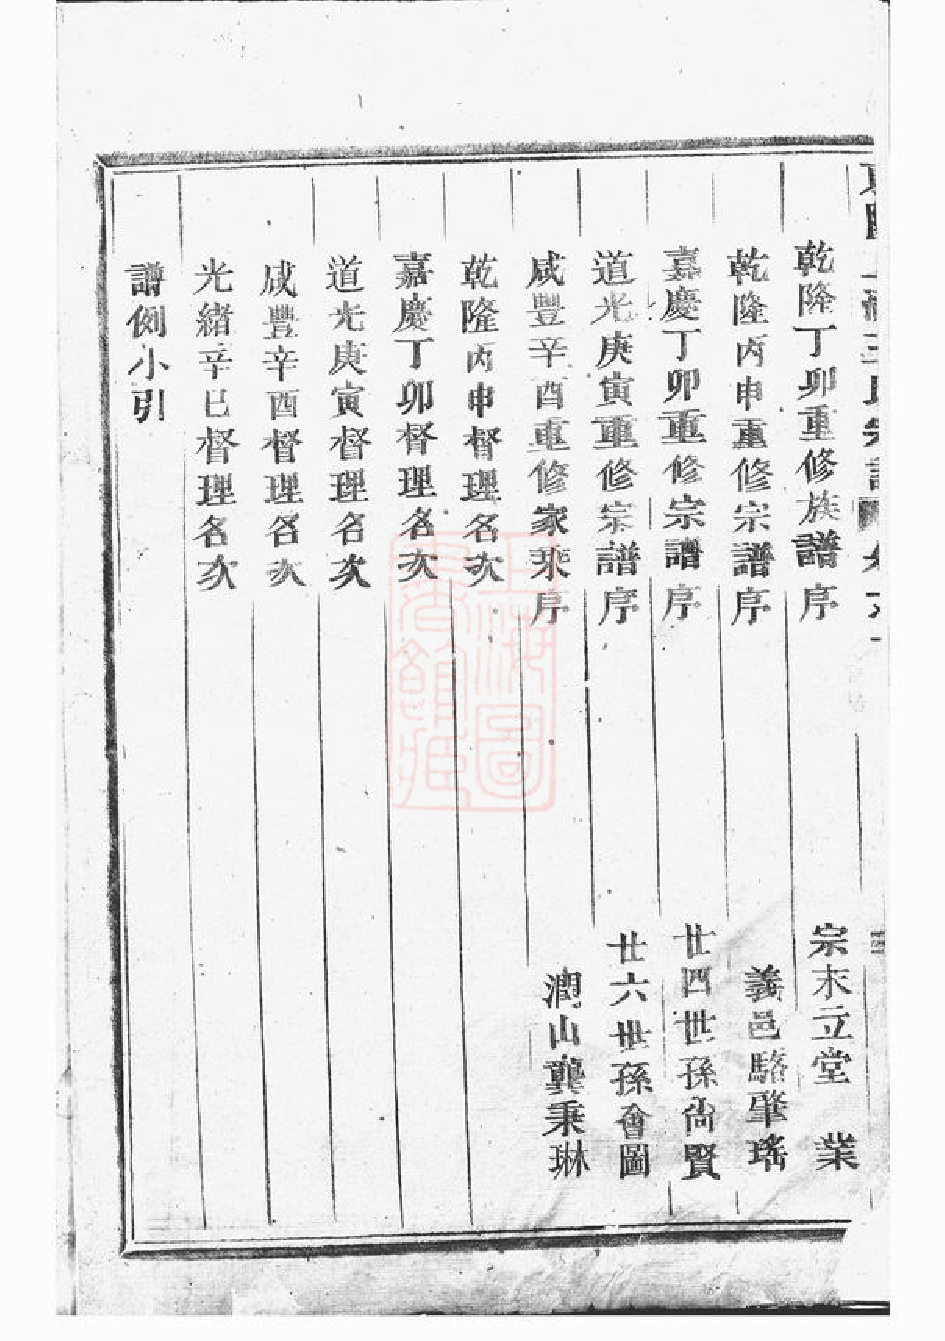 乾隆丁卯重修族譜序　宗末立堂　業
乾隆丙申重修宗譜序　義邑駱肇瑤
嘉慶丁卯重修宗譜序　廿四世孫尙賢
道光庚寅重修宗譜序　廿六世孫會圖
咸豐辛酉重修家乘序　潤山龔秉琳
乾隆丙申督理名次
嘉慶丁卯督理名次
道光庚寅督理名次
咸豐辛酉督理名次
光緒辛巳督理名次
譜例小引